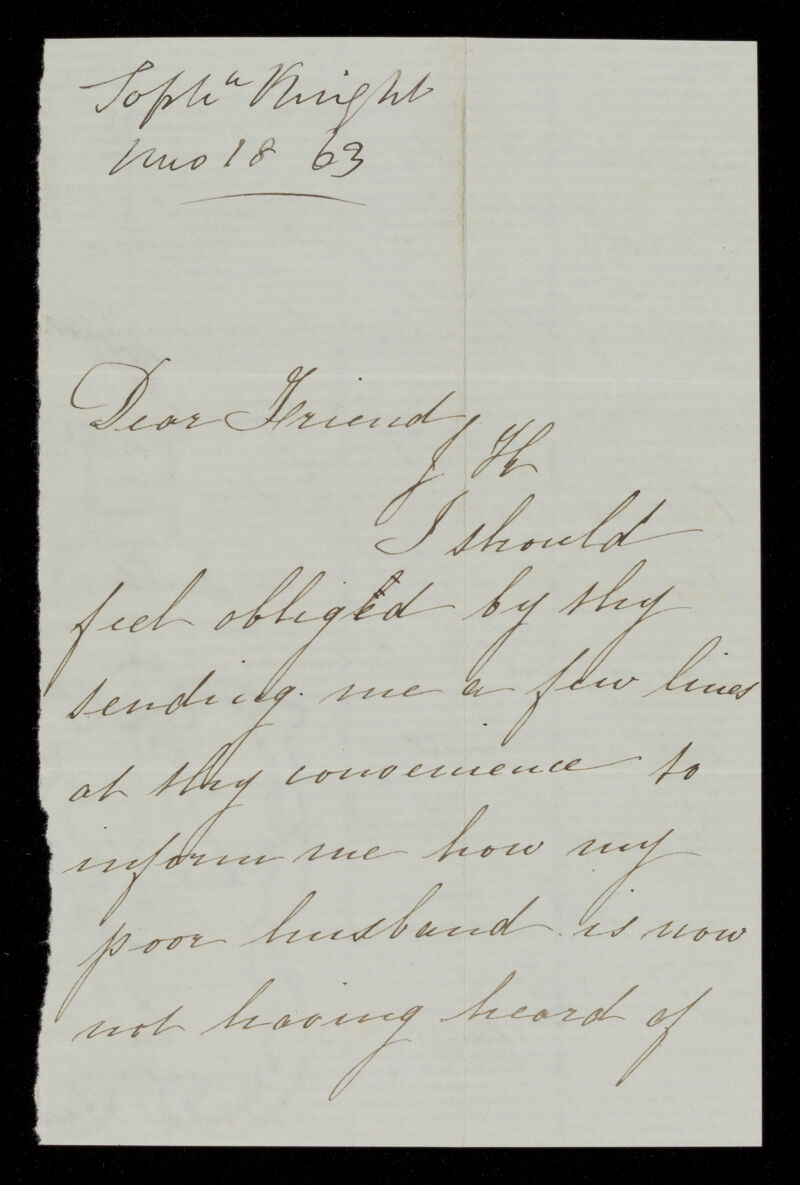 Soph^a Knight
mo 18 63
Dear Friend
J H
I should
feel obliged by thy
sending me a few lines
at thy convenience to
inform me how my
poor husband is now
not having heard of